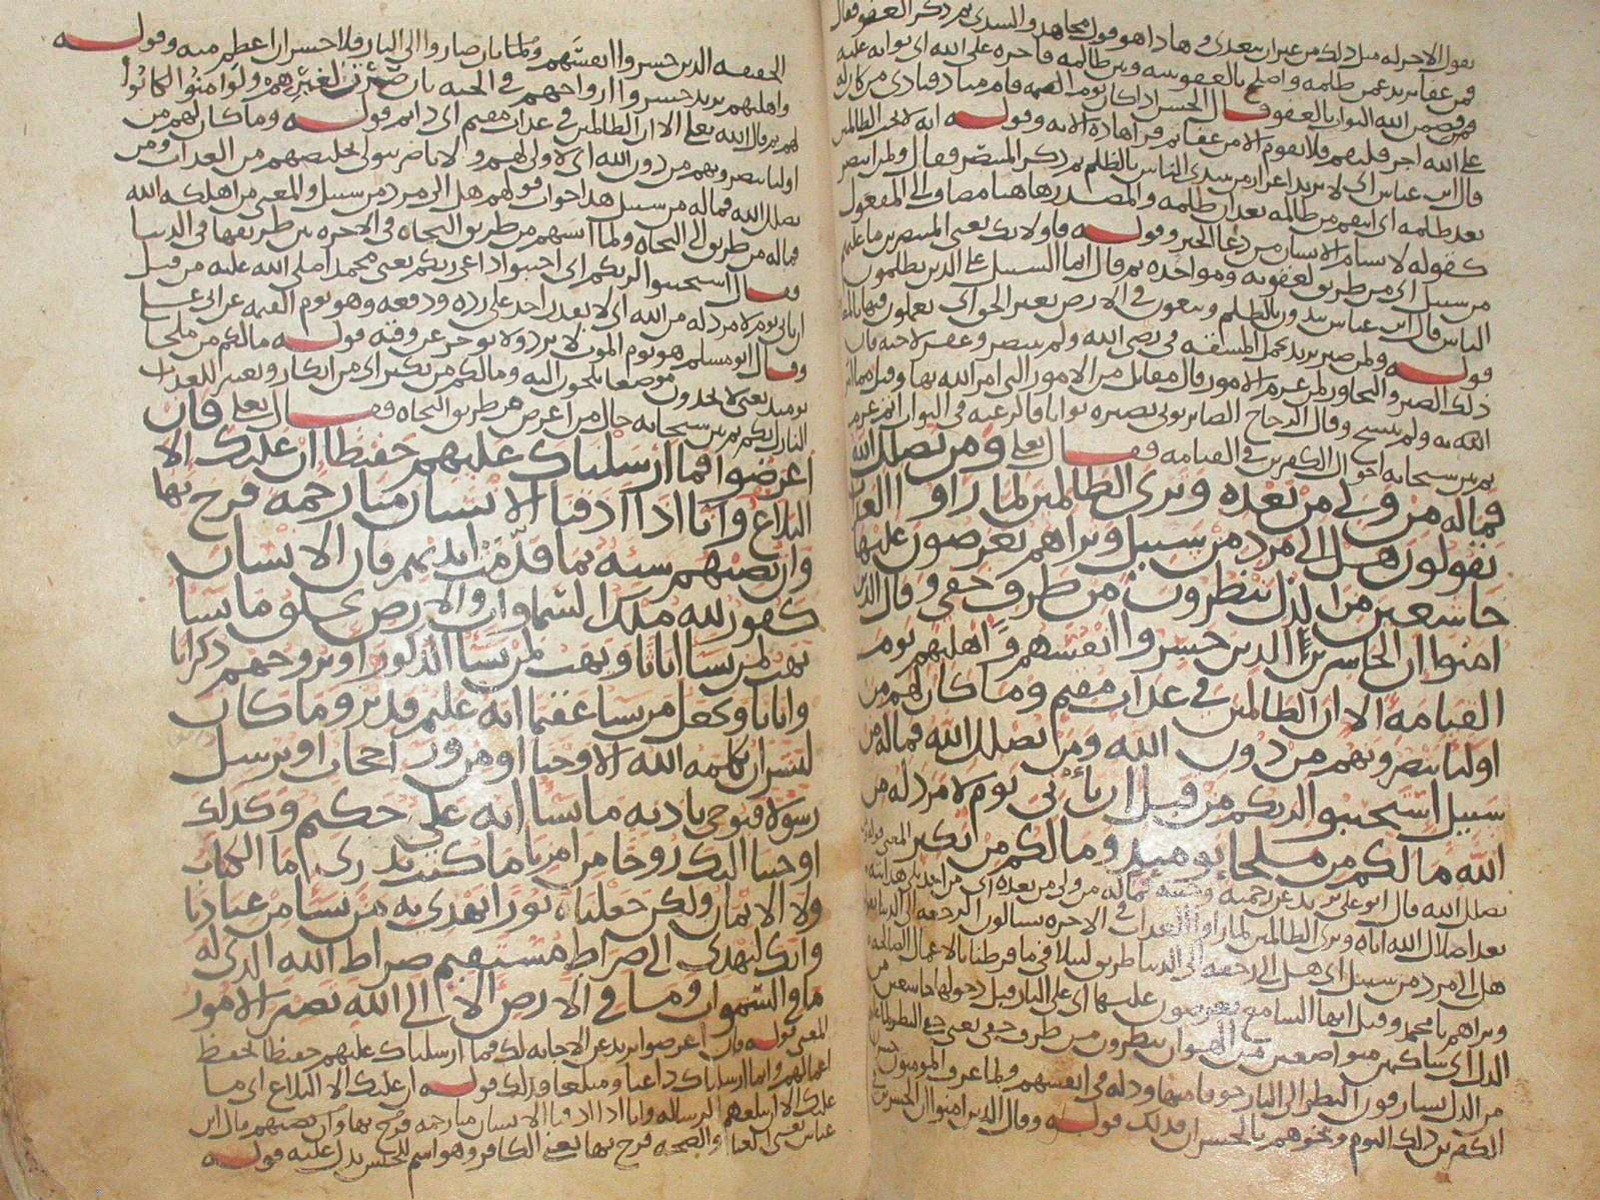 يقول الاجر له مثل ذلك من غير ان يتعدى في هاذا هو قول مجاهد والسدي ثم ذكر العفو فقال
فمن عفا يريد عمن ظلمه واصلح بالعفو بينه وبين ظالمه فاجره على الله اي ثوابه عليه
الله الثواب بالعفو قال الحسن اذا كان يوم القيمه قام مناد فنادى من كان له
على الله اجر فليقم فلا يقوم الا من عفا ثم قرا هاذه الايه وقوله انه لا يحب الظالمين
قال ابن عباس اي لا يريد من يبتدي الناس بالظلم ثم ذكر المنتصر فقال ولمن انتصر
بعد ظلمه اي انتقم من ظالمه بعد ان ظلمه والمصدر هاهنا مضاف الى المفعول
كقوله لا يسام الانسان من دعا الخير وقوله فاولايك يعني المنتصرين ما عليهم
من سبيل اي من طريق لعقوبه ومواخذه ثم قال انما السبيل على الذين يظلمون
الناس قال ابن عباس يبدون بالظلم ويبغون في الارض بغير الحق اي يعملون فيها
قوله ولمن صبر يريد تحمل المشقه في رضى الله ولم ينتصر وغفر لاخيه فان
ذلك الصبر والتجاوز لمن عزم الامور قال مقاتل من الامور التي امر الله بها
وقال الزجاج الصابر يوتى بصبره ثوابا فالرغبه في الثواب اتم عزم
ثم بين سبحانه احوال الكفرين في القيامه فقال تعلى ومن يضلل الله
فما له من ولي من بعده وترى الظالمين لما راوا العذاب
يقولون هل الى مرد من سبيل وتراهم يعرضون عليها
خاشعين من الذل ينظرون من طرف خفي وقال الذين
امنوا ان الخاسرين الذين خسروا انفسهم واهليهم يوم
القيامة الا ان الظالمين في عذاب مقيم وما كان لهم من
اوليا ينصرونهم من دون الله ومن يضلل الله فما له من
سبيل استجيبوا لربكم من قبل ان ياتي يوم لا مرد له من
الله ما لكم من ملجا يوميذ وما لكم من نكير المعنى قوله
يضلل الله قال ابو علي يريد عن رحمته وجنته فما له من ولي من بعده اي من احد يلي هدايته
بعد اضلال الله اياه وترى الظالمين لما راوا العذاب في الاخره يسالون الرجعه الى الدنيا
هل الى مرد من سبيل اي هل الى رجعه الى الدنيا طريق لنتلافى ما فرطنا بالاعمال الصالحه
وتراهم يا محمد وقيل ايها السامع يعرضون عليها اي على النار قبل دخولها خاشعين من
الذل اي ساكنين متواضعين من الهوان ينظرون من طرف خفي يعني خفي النظر
من الذل يسارقون النظر الى النار خوفا منها وذله في انفسهم ولما عرف المومنون
الكفرين ذلك اليوم ونحوهم بالخسران فذلك قوله وقال الذين امنوا ان الخسرين
الحقيقه الذين خسروا انفسهم ولما بان صاروا الى النار فلا خسران اعظم منه وقوله
واهليهم يريد خسروا ازواجهم في الجنه بان صرن لغيرهم ولو امنوا لكانوا
لهم ثم قال الله تعلى الا ان الظالمين في عذاب مقيم اي دايم قوله وما كان لهم من
اوليا ينصرونهم من دون الله اي لا ولي لهم ولا ناصر يتولى تخليصهم من العذاب ومن
يضلل الله فما له من سبيل هذا جواب قولهم هل الى مرد من سبيل والمعنى من اهلكه الله
فما له من طريق الى النجاه ولما ايسهم من طريق النجاه في الاخره بين طريقها في الدنيا
فقال استجيبوا لربكم اي اجيبوا داعي ربكم يعني محمدا صلى الله عليه من قبل
ان ياتي يوم لا مرد له من الله اي لا يقدر احد على رده ودفعه وهو يوم القيمه عن ابي علي
وقال ابو مسلم هو يوم الموت لا يرد ولا يوخر عن وقته قوله ما لكم من ملجا
يوميذ يعني لا تجدون موضعا تلجون اليه وما لكم من نكير اي من انكار وتغيير للعذاب
النازل بكم ثم بين سبحانه حال من اعرض عن طريق النجاه فقال تعلى فان
اعرضوا فما ارسلناك عليهم حفيظا ان عليك الا
البلاغ وانا اذا اذقنا الانسان منا رحمه فرح بها
وان تصبهم سيه بما قدمت ايديهم فان الانسان
كفور لله ملك السماوات والارض يخلق ما يشا
يهب لمن يشا اناثا ويهب لمن يشا الذكور او يزوجهم ذكرانا
واناثا ويجعل من يشا عقيما انه عليم قدير وما كان
لبشر ان يكلمه الله الا وحيا او من ورا حجاب او يرسل
رسولا فيوحي باذنه ما يشا انه علي حكيم وكذلك
اوحينا اليك روحا من امرنا ما كنت تدري ما الكتاب
ولا الايمان ولكن جعلناه نورا نهدي به من نشا من عبادنا
وانك لتهدي الى صراط مستقيم صراط الله الذي له
ما في السموات وما في الارض الا الى الله تصير الامور
المعنى قوله فان اعرضوا يريد عن الاجابه لك فما ارسلناك عليهم حفيظا تحفظ
اعمالهم وانما ارسلناك داعيا ومبلغا فذلك قوله ان عليك الا البلاغ اي ما
عليك الا ان تبلغهم الرساله وانا اذا اذقنا الانسان منا رحمه فرح بها وان تصبهم قال ابن
عباس يعني الغنا والصحه فرح بها يعني الكافر وهو اسم للجنس يدل عليه قوله